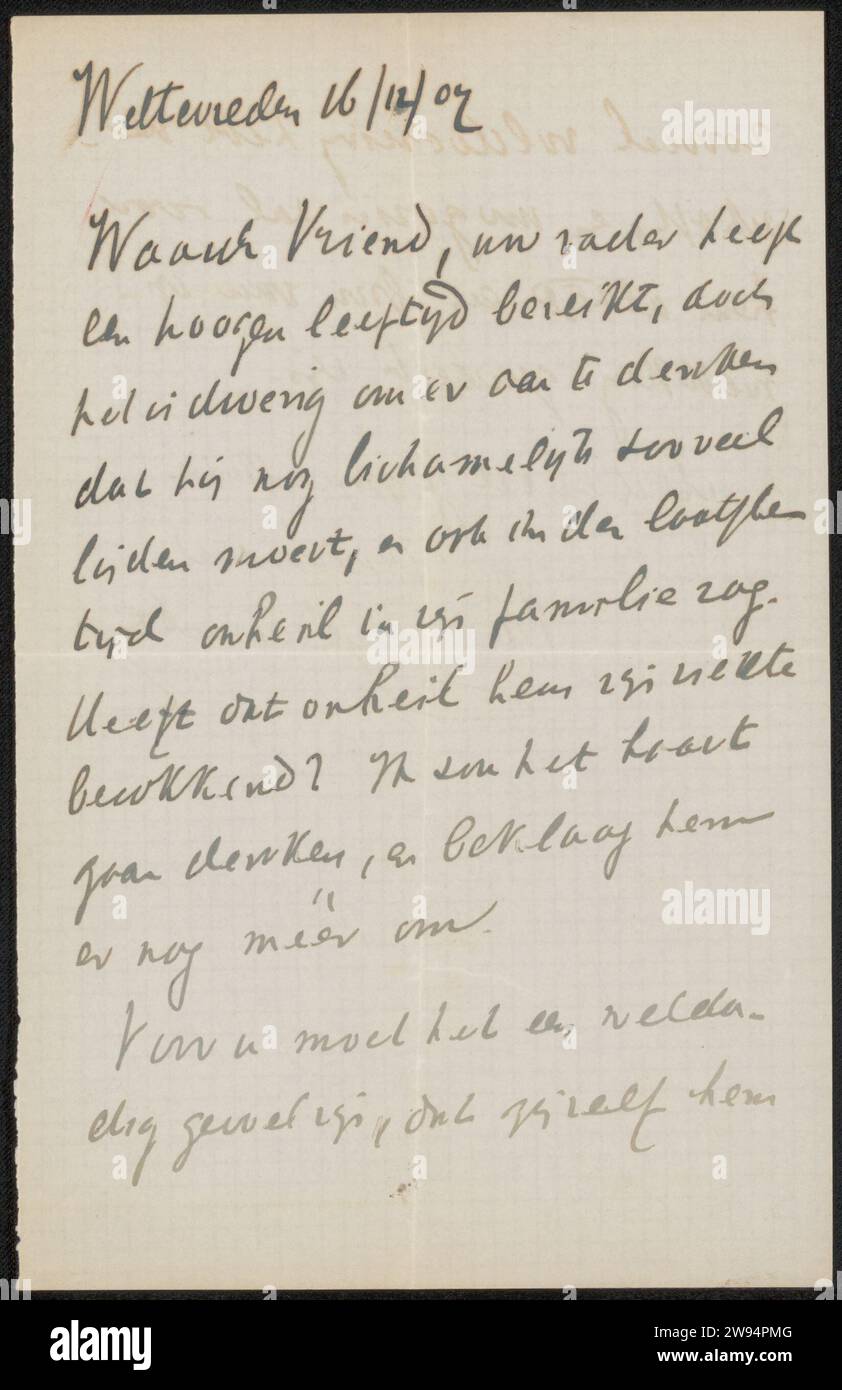 Weltevreden 16/12/07
Waarde Vriend, uw vader heeft
een hoogen leeftyd bereikt, doch
het is droevig om er aan te denken
dat hij nog lichamelyk zooveel
lijden moest, en ook in den laatsten
tijd onheil in zijn familie zag.
Heeft dat onheil hem zijn ziekte
berokkend? Ik zou het haast
gaan denken, en beklaag hem
er nog méér om.
Voor u moet het een welda-
dig gevoel zijn, dat gij zelf hem
alamy
Image ID: 2W94PMG
www.alamy.com